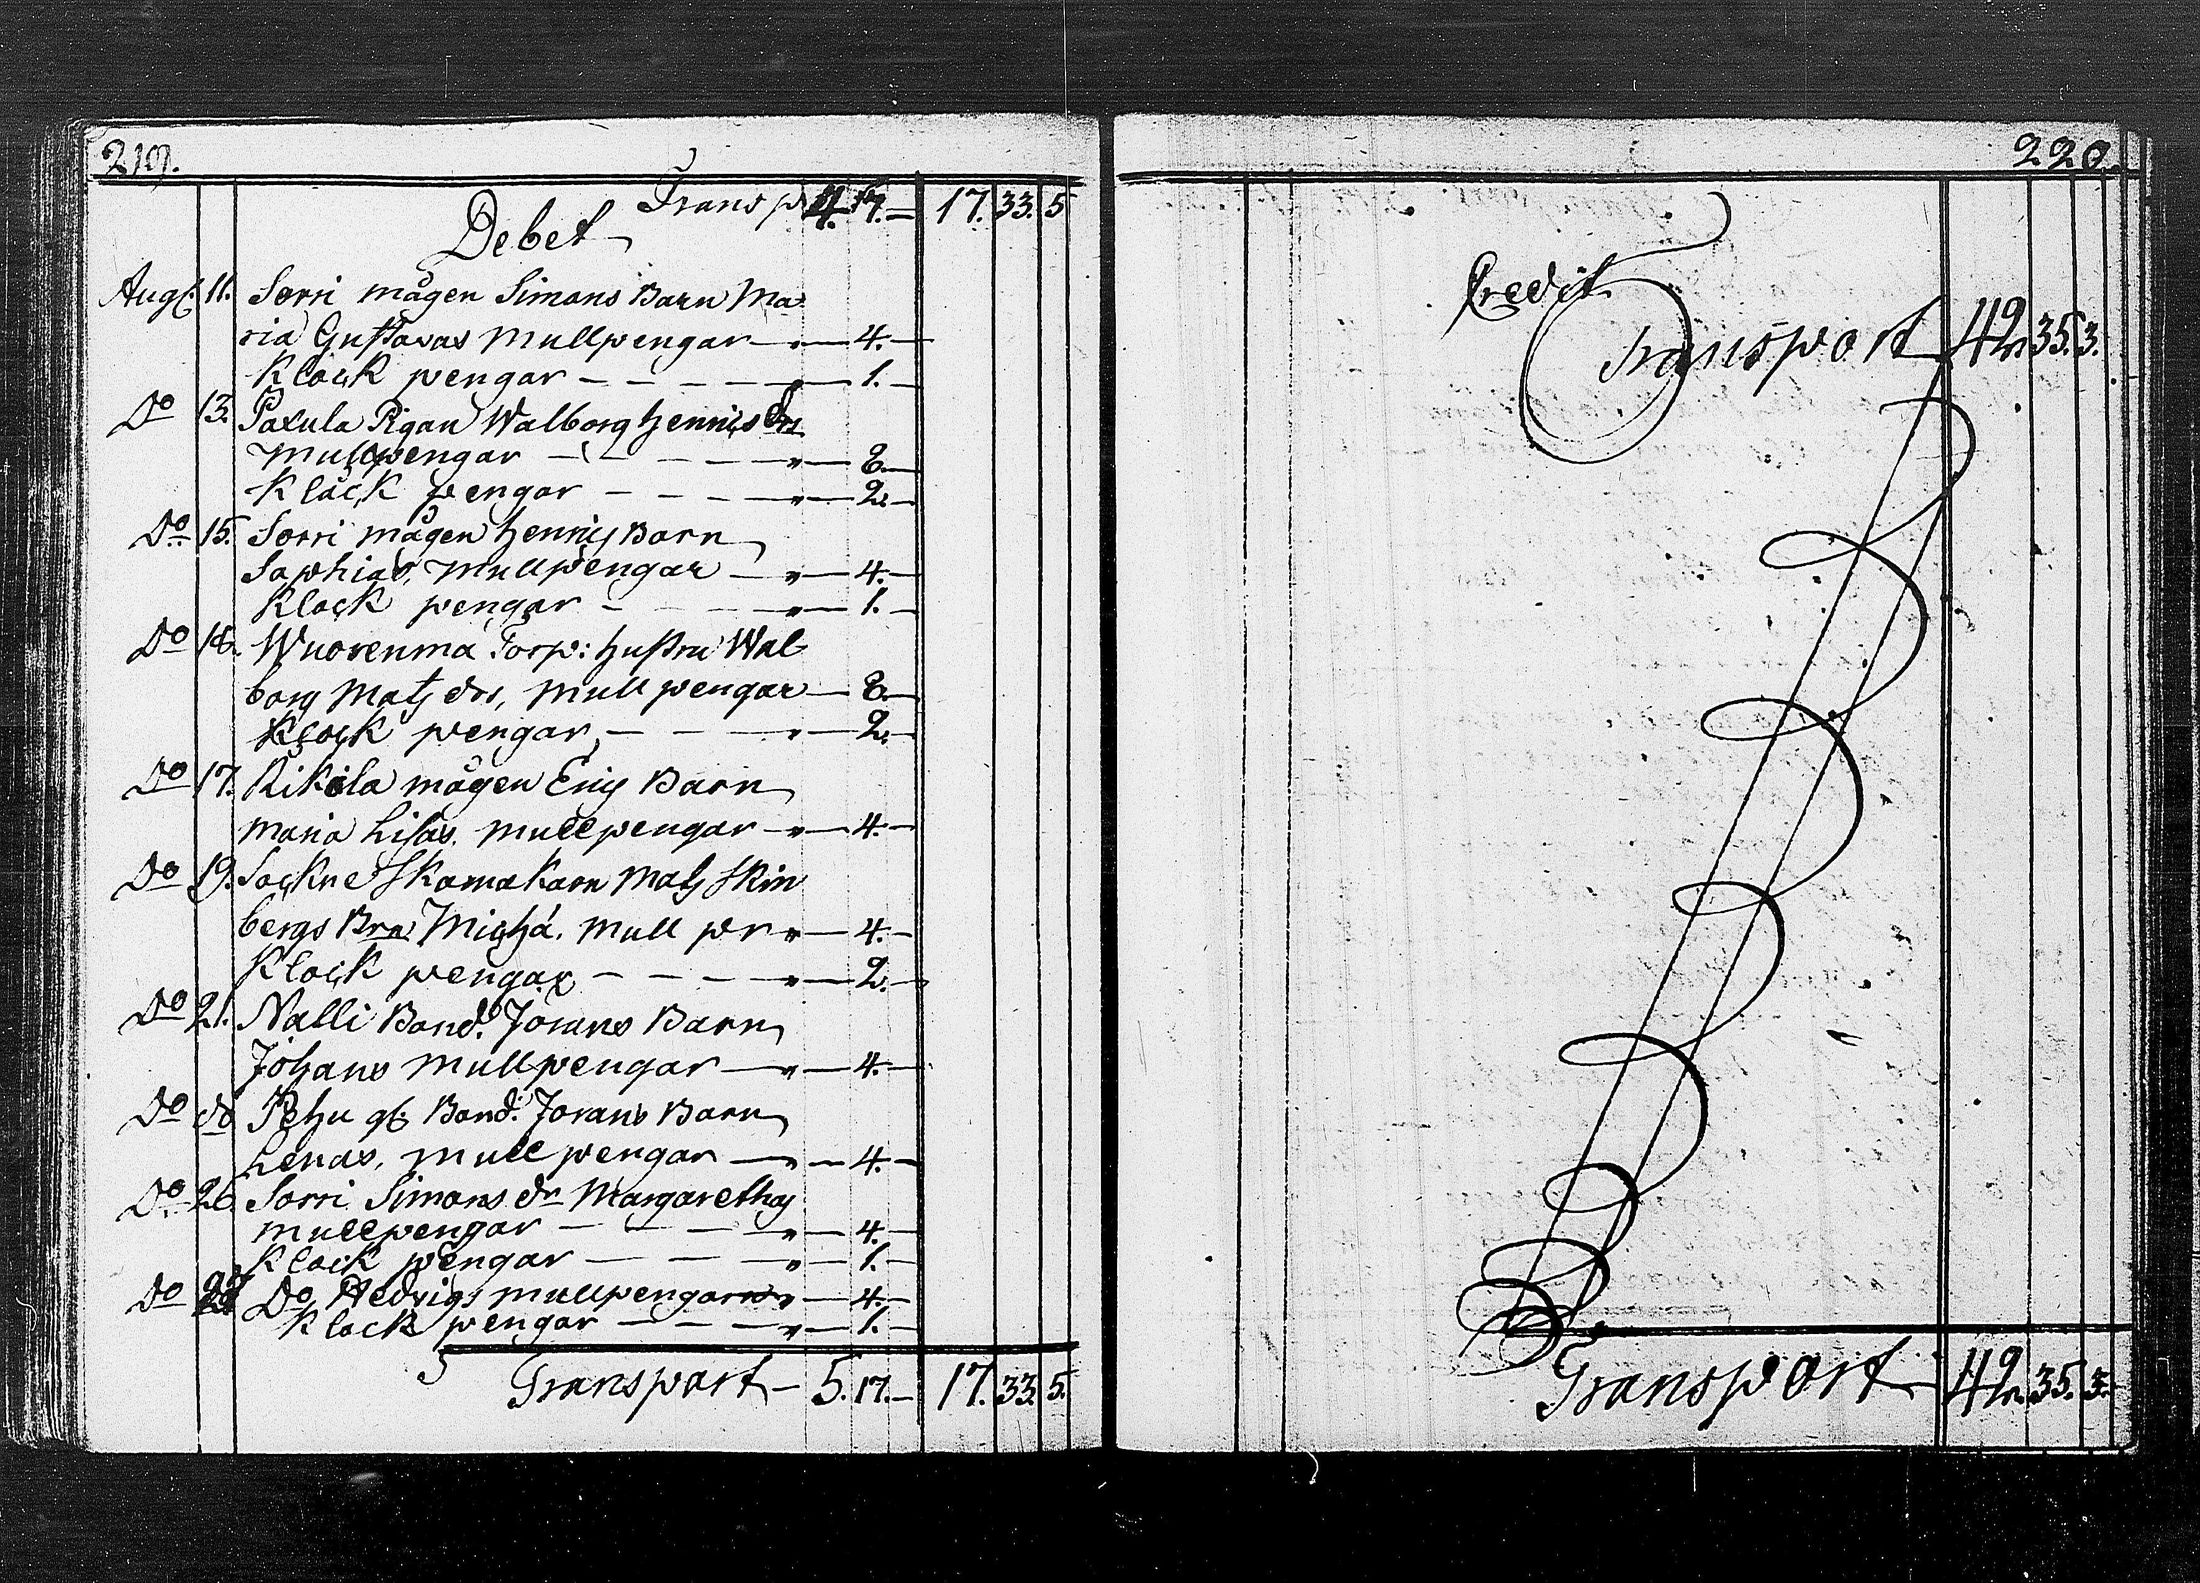 219.
Transp 4. 17. — 17. 33. 5
Debet
Aug. 11. Sorri mågen Simons Barn Ma-
ria Gustavas Mullpengar — 4. —
Klåck pengar — — — — 1. —
Do 13. Paxula Pigan Walborg Henricsdr
Mullpengar — — — — " — 8. —
Klåck pengar — — — " — 2. —
Do 15. Sorri mågen Henrics Barn
Saphias, Mullpengar — " — 4. —
Klock pengar — — — " — 1. —
Do 16. Wuorenma Torp: Hustru Wal-
borg Mats dor, Mull pengar — 8. —
Klock pengar — — — " — 2. —
Do 17. Kikola mågen Erics Barn
Maria Lisas. Mullpengar — " — 4. —
Do 19. Sockne Skomakarn Mats Skin
bergs Brn Michá. Mull pr " — 4. —
Klock pengar — — — " — 2. —
Do 21. Nalli Bond. Jörans Barn
Johans Mullpengar — " — 4. —
Do do Pehu gl Bond. Jorans Barn
Lenas, Mull pengar — " — 4. —
Do 26 Sorri Simons dr Margarethas
Mullpengar — — — " — 4. —
Klock pengar — — — " — 1. —
Do Do Hedvigs mullpengar " — 4. —
Klock pengar — — — " — 1. —
Transport — 5. 17. — 17. 33. 5.
220.
Credit
Transport 42. 35. 3.
Transport 42. 35. 3.